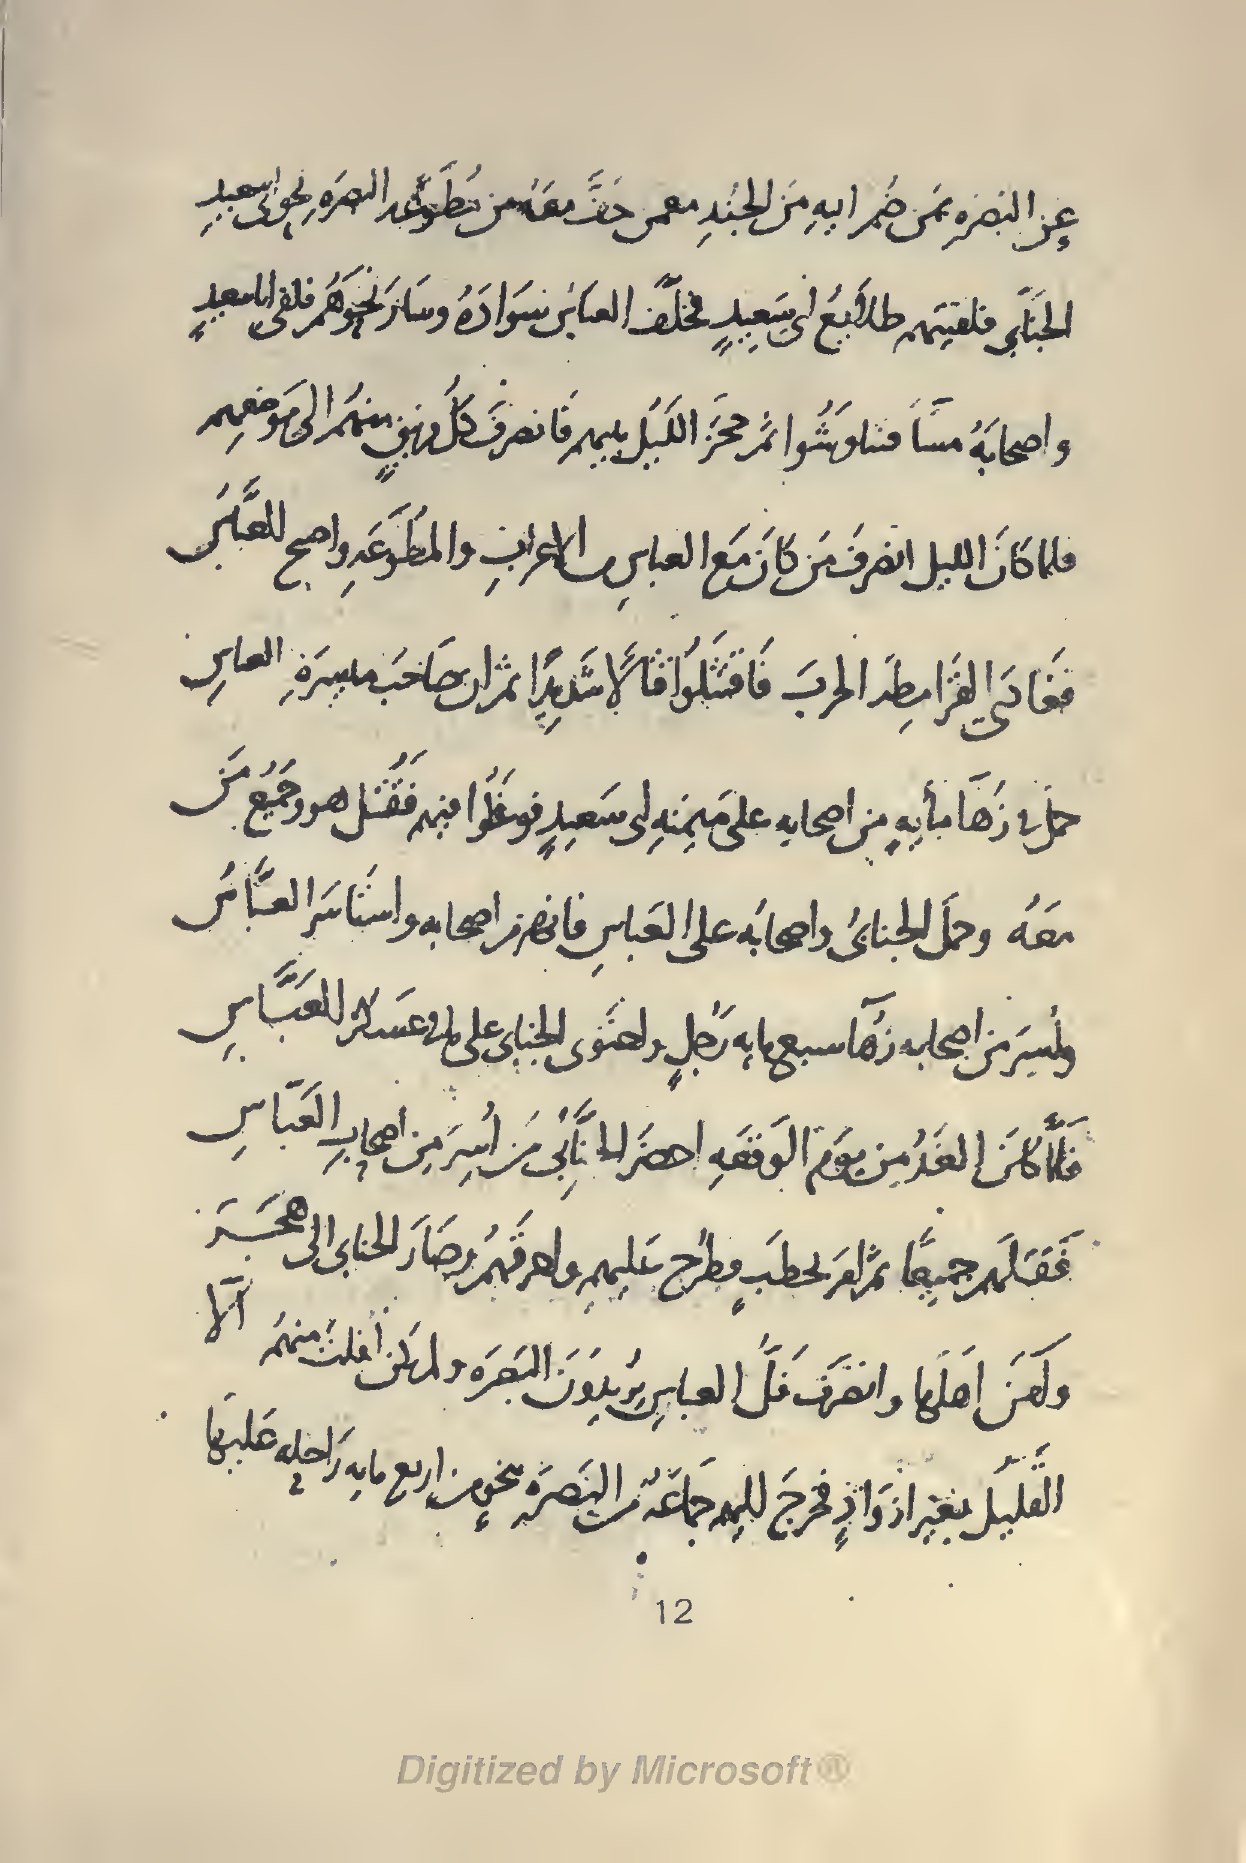 عن البصره بمن ضم اليه من الجند مع من خف معه من مطوعه البصره نحو ابي سعيد
الجنابي فلقيتهم طلائع ابي سعيد فخلف العباس سواده وسار نحوهم فلقي ابا سعيد
واصحابه مساً فتناوشوا ثم حجز الليل بينهم فانصرف كل فريق منهم الى موضعهم
فلما كان الليل انصرف من كان مع العباس من الاعراب والمطوعه واصبح العباس
فغادي القرامطه الحرب فاقتتلوا قتالاً شديدًا ثم ان صاحب ميسرة العباس
حمل في زهآ مأيه من اصحابه على ميمنه ابي سعيد فوغلوا فيهم فقتل هو وجميع من
معه وحمل الجنابي واصحابه على العباس فانهزم اصحابه واستأسر العباس
وأسر من اصحابه زهآ سبع مايه رجل واحتوى الجنابي على ما في عسكر العباس
فلما كان الغد من يوم الوقعه احضر الجنابي من أسر من اصحاب العباس
فقتلهم جميعًا ثم امر بحطب فطرح عليهم واحرقهم وصار الجنابي الى هجر
وآمن اهلها وانصرف فل العباس يريدون البصره ولم يكن أفلت منهم الا
القليل بغير ازواد فخرج اليهم جماعة من البصره بنحو من اربع مايه راحله عليها
12
Digitized by Microsoft®